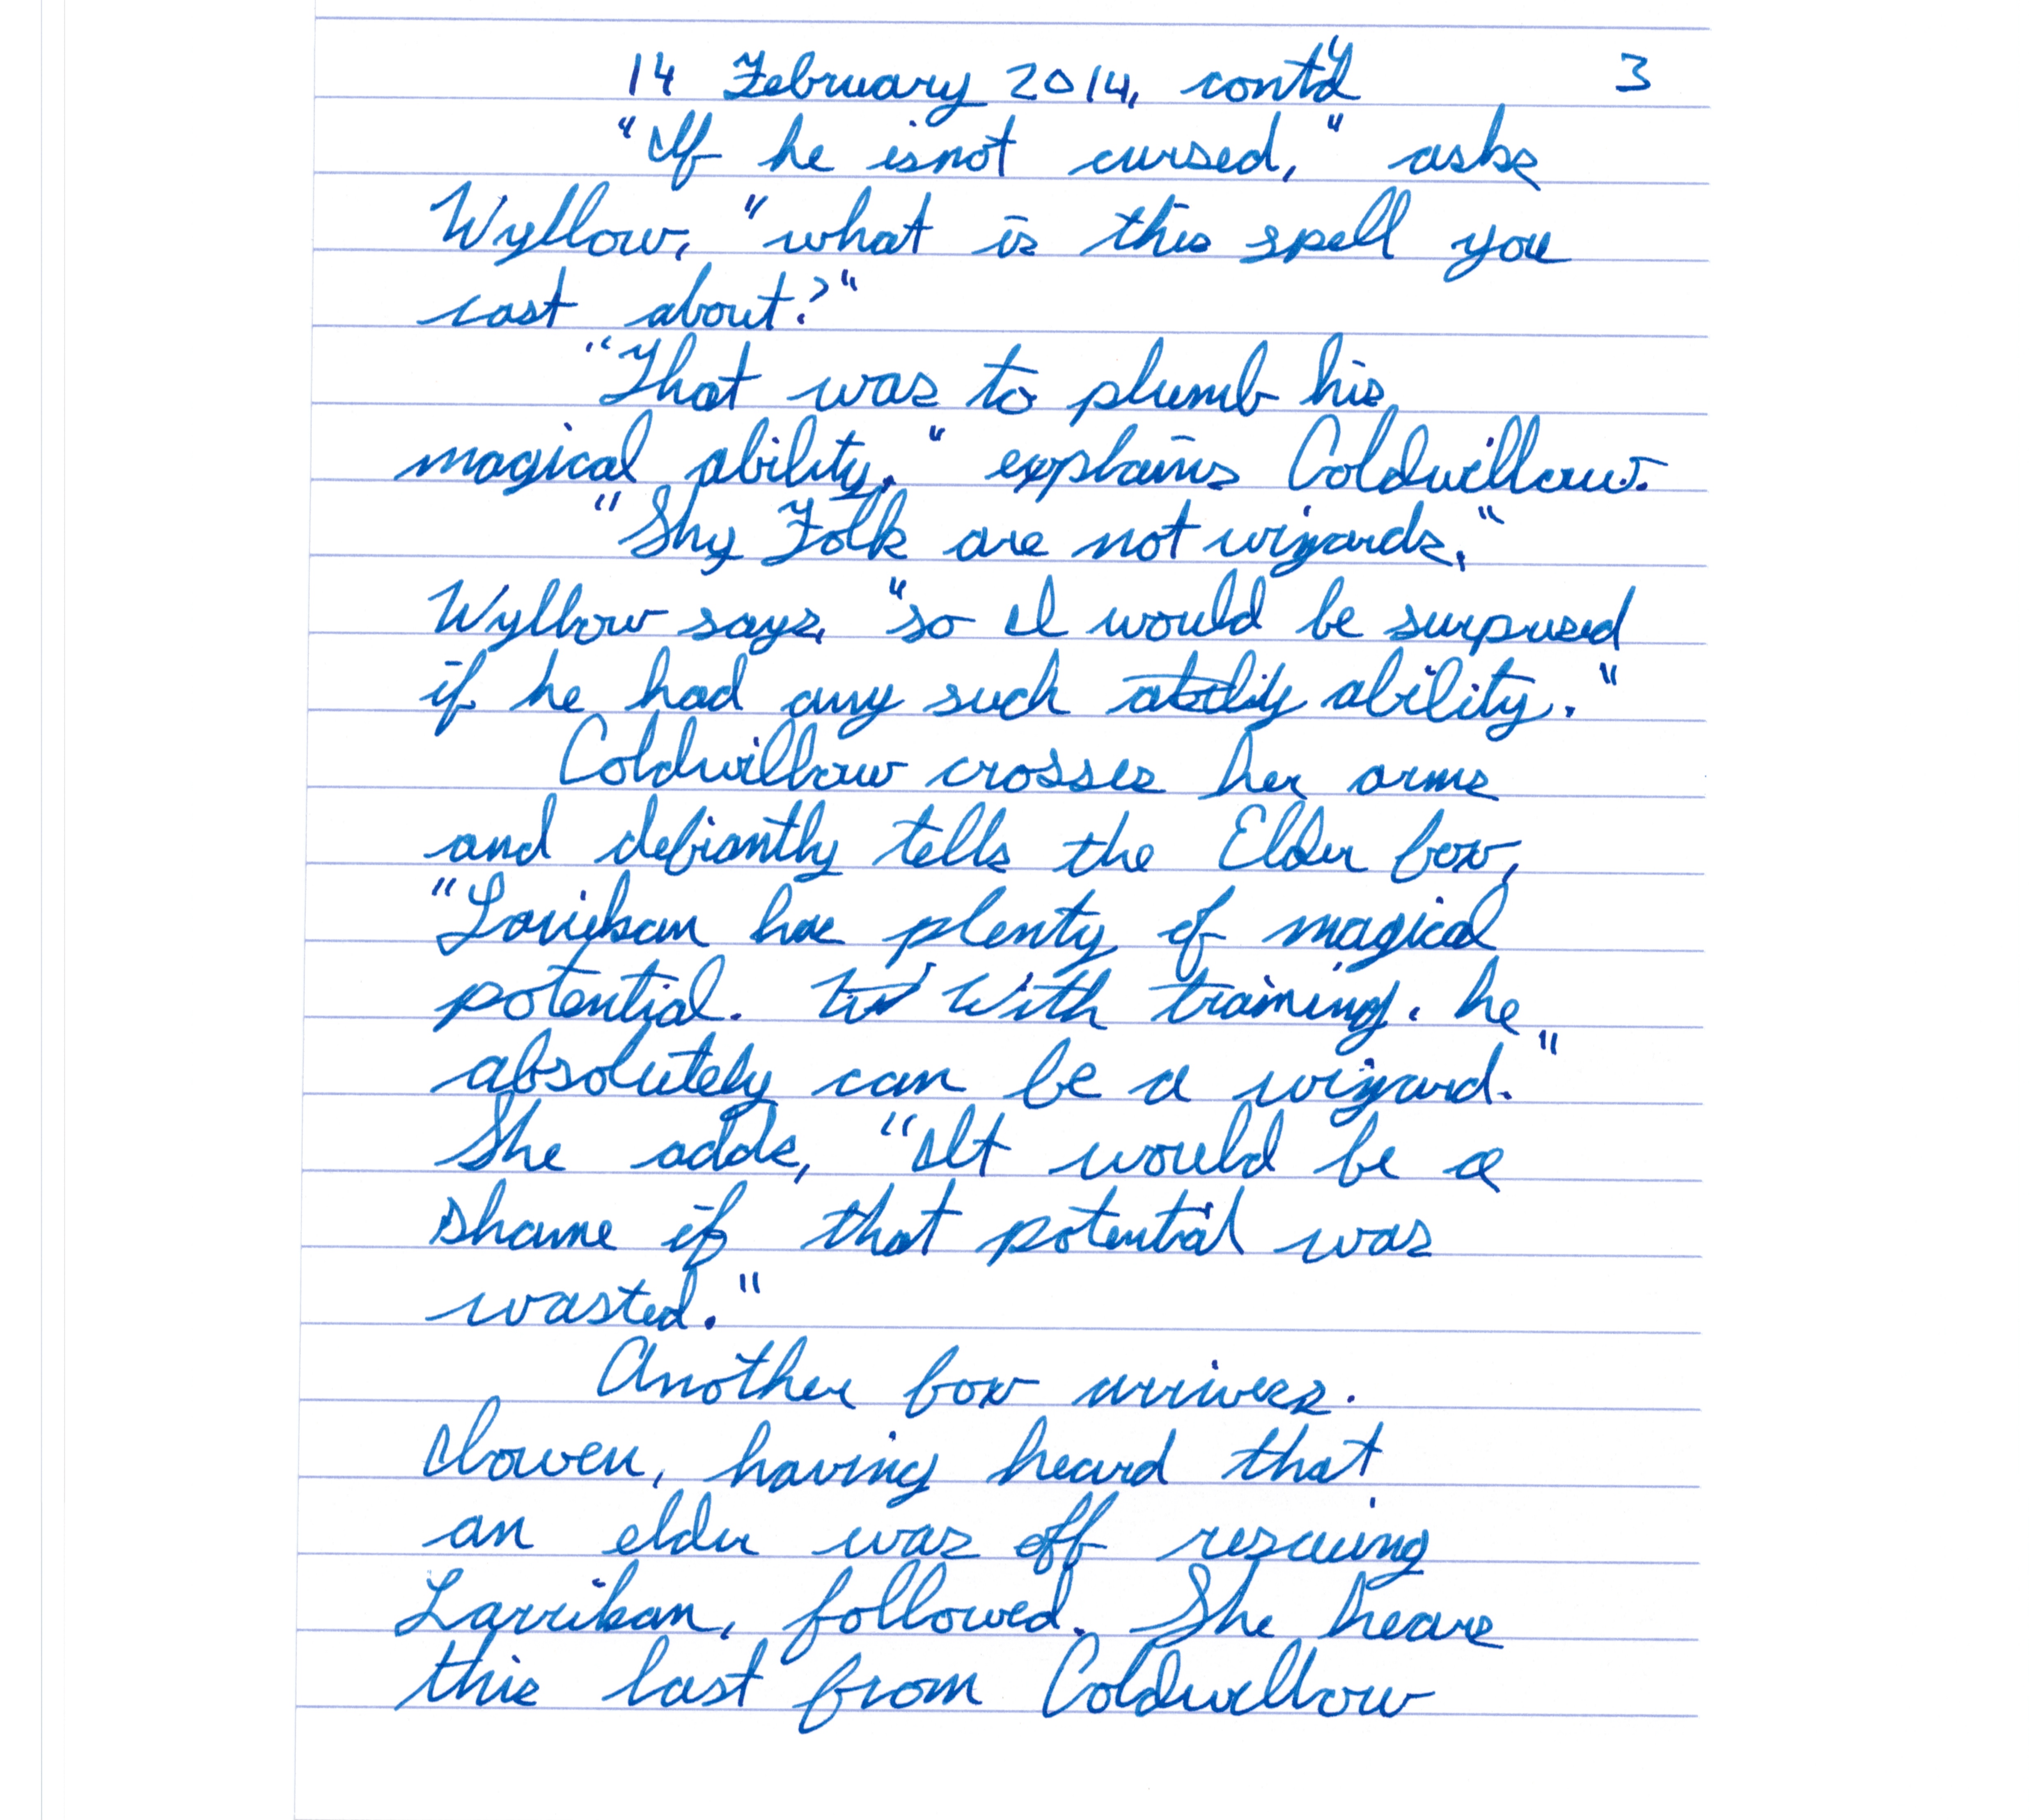 14 February 2014, cont'd 3
"If he is not cursed," asks
Wyllow, "what is this spell you
cast about?"
"That was to plumb his
magical ability," explains Coldwillow.
"Shy Folk are not wizards,"
Wyllow says, "so I would be surprised
if he had any such ability ability."
Coldwillow crosses her arms
and defiantly tells the Elder fox,
"Larrikan has plenty of magical
potential. With training, he
absolutely can be a wizard."
She adds, "It would be a
shame if that potential was
wasted."
Another fox arrives.
having heard that
an elder was off rescuing
Larrikan, followed. She hears
this last from Coldwillow